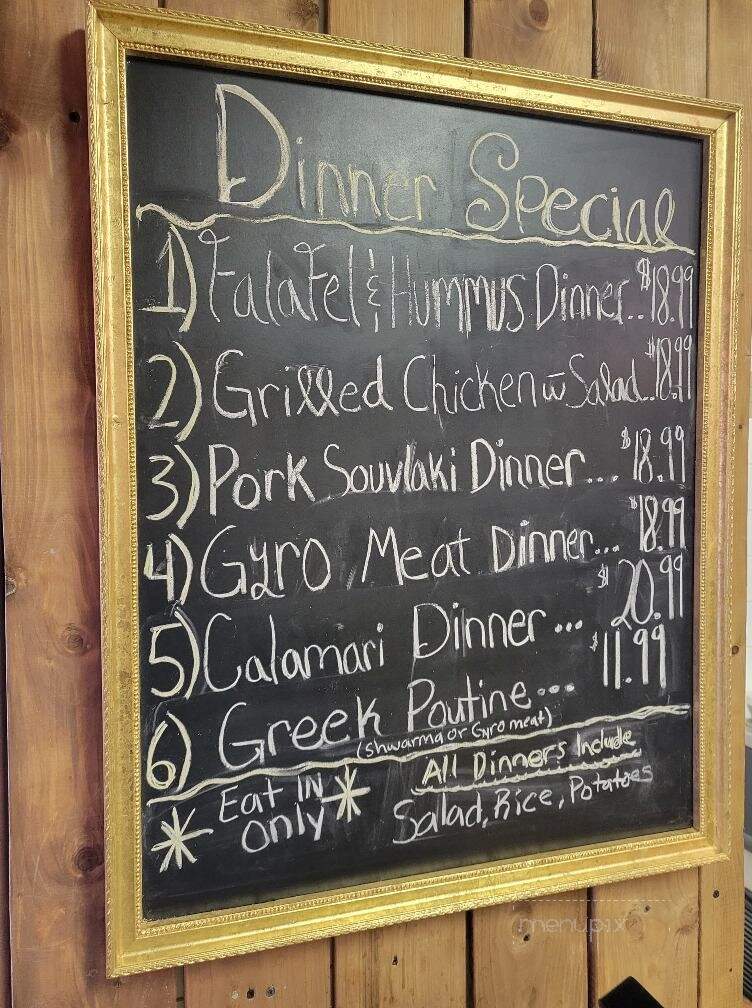 Dinner Special
1) Falafel & Hummus Dinner..$18.99
2) Grilled Chicken w Salad..$18.99
3) Pork Souvlaki Dinner...$18.99
4) Gyro Meat Dinner...$18.99
5) Calamari Dinner...$20.99
6) Greek Poutine...$11.99
(Shwarma or Gyro meat)
* Eat IN * All Dinners Include
Only Salad, Rice, Potatoes
menupix